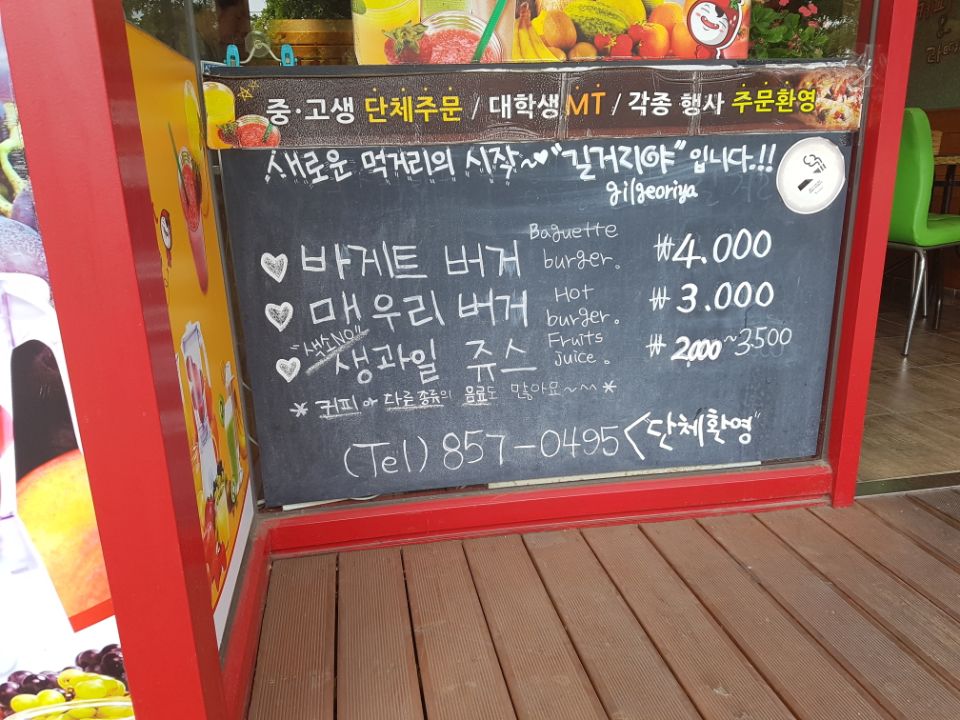 중·고생 단체주문 / 대학생 MT / 각종 행사 주문환영
새로운 먹거리의 시작~♥"길거리야"입니다.!!
gilgeoriya
♡ 바게트 버거 Baguette burger. ₩4.000
♡ 매우리 버거 Hot burger. ₩3.000
"색소NO!!"
♡ 생과일 쥬스 Fruits Juice. ₩2,000~3500
*커피와 다른종류의 음료도 많아요~^^*
(Tel) 857-0495 <"단체환영"